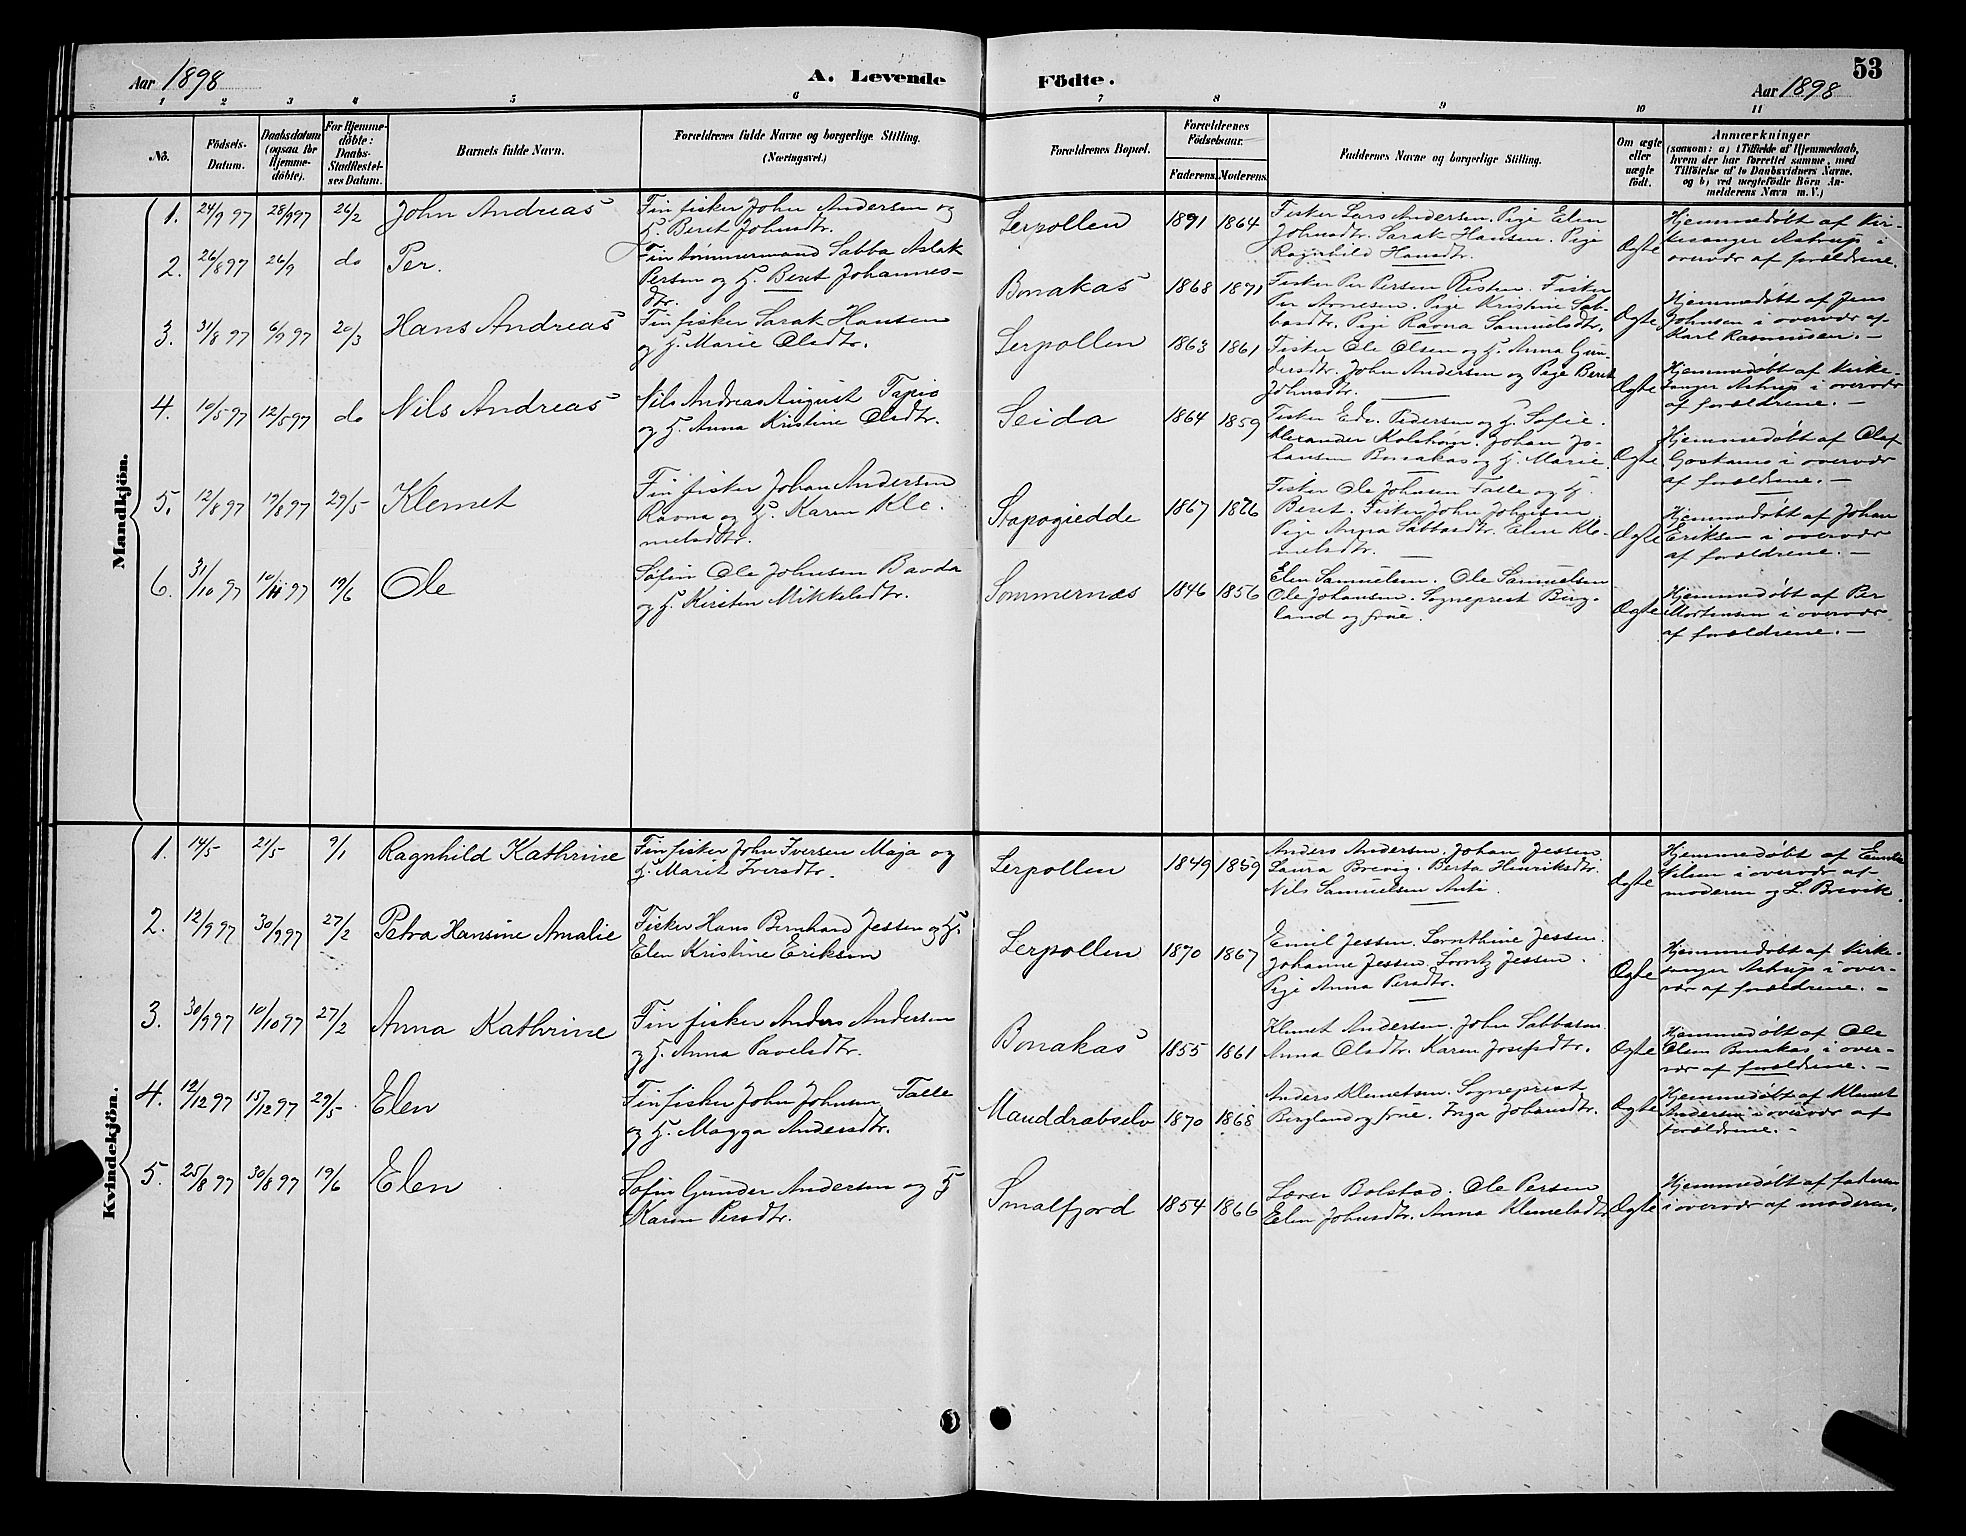 Aar 1898
A. Levende
Födte.
53
Aar 1898
1 2 3 4 5 6 7 8 9 10 11
No.
Födsels-
Datum.
Daabsdatum
(ogsaa for
Hjemme-
döbte).
For Hjemme-
döbte:
Daabs-
Stadfæstel-
ses Datum.
Barnets fulde Navn.
Forældrenes fulde Navne og borgerlige Stilling.
(Næringsvei.)
Forældrenes Bopæl.
Forældrenes
Födselsaar.
Faderens. Moderens.
Faddernes Navne og borgerlige Stilling.
Om ægte
eller
uægte
födt.
Anmærkninger
(saasom: a) i Tilfælde af Hjemmedaab,
hvem der har forrettet samme, med
Tilföielse af to Daabsvidners Navne.
og b) ved uægtefödte Börn An-
melderens Navn m. V.)
Mandkjön.
1. 24/9 97 28/9 97 26/2 John Andreas
Finfisker John Andersen og
H. Beret Johnsdtr.
Lerpollen 1891 1864
Fisker Lars Andersen. Pige Elen
Johnsdtr. Sarak Hansen. Pige
Ragnhild Hansdtr.
Ægte
Hjemmedøbt af Kir-
kesanger Astrup i
overvær af forældrene.
2. 26/8 97 26/9 do Per.
Fin tømmermand Sabba Aslak
Persen og H. Beret Johannes-
dtr.
Bonakas 1868 1871
Fisker Per Persen Risten. Fisker
Per Arnesen. Pige Kristine Sab-
basdtr. Pige Ravna Samuelsdtr.
Ægte
Hjemmedøbt af Jens
Johnsen i overvær af
Karl Rasmussen. –
3. 31/8 97 6/9 97 20/3 Hans Andreas
Finfisker Sarak Hansen
og H. Marie Olsdtr.
Lerpollen 1863 1861
Fisker Ole Olsen og H. Anna Gun-
dersdtr. John Andersen og Pige Beret
Johnsdtr.
Ægte
Hjemmedøbt af Kirke-
sanger Astrup i overvær
af forældrene. –
4. 10/5 97 12/5 97 do Nils Andreas
Nils Andreas August Tapio
og H. Anna Kristine Olsdtr.
Seida 1864 1859
Fisker Edv. Pedersen og H. Sofie.
Alexander Kolstrøm. Johan Jo-
hansen Bonakas og H. Marie.
Ægte
Hjemmedøbt af Olaf
i overvær
af forældrene. –
5. 12/8 97 19/8 97 29/5 Klemet
Finfisker Johan Andersen
Ravna og H. Karen Kle-
metsdtr.
Stapogiedde 1867
Fisker Ole Johnsen Talle og H.
Beret. Fisker John Johnsen
Pige Anna Sabbasdtr. Elen Kle-
metsdtr.
Ægte
Hjemmedøbt af Johan
Eriksen i overvær
af forældrene. –
6. 31/10 97 10/11 97 19/6 Ole
Søfin Ole Johnsen Bavda
og H. Kirsten Mikkelsdtr.
Sommernæs 1846 1856
Elen Samuelsen. Ole Samuelsen
Ole Johansen. Sogneprest Berg-
land og frue.
Ægte
Hjemmedøbt af Per
Mortensen i overvær
af forældrene. –
Kvindekjön.
1. 14/5 21/5 9/1 Ragnhild Kathrine
Finfisker John Iversen Maja og
H. Marit Iversdtr.
Lerpollen 1849 1859
Anders Andersen. Johan Jessen
Laura Brevig. Berta Henriksdtr.
Nils Samuelsen Anti.
Ægte
Hjemmedøbt af
Nilsen i overvær af
moderen og L. Brevik.
2. 12/9 97 30/9 97 27/2 Petra Hansine Amalie
Fisker Hans Bernhard Jessen og H.
Elen Kristine Eriksen
Lerpollen 1870 1867
Emil Jessen. Lornthine Jessen.
Johanne Jessen. Lorntz Jessen.
Pige Anna Persdtr.
Ægte
Hjemmedøbt af Kirke-
sanger Astrup i over-
vær af forældrene. –
3. 30/9 97 10/10 97 27/2 Anna Kathrine
Finfisker Anders Andersen
og H. Anna Pavelsdtr.
Bonakas 1855 1861
Klemet Andersen. John Sabbasen.
Anna Olsdtr. Karen Josefsdtr.
Ægte
Hjemmedøbt af Ole
Olsen Bonakas i over-
vær af forældrene. –
4. 12/12 97 15/12 97 29/5 Elen
Finfisker John Johnsen Talle
og H. Magga Andersdtr.
Mauddrabselv 1870 1868
Anders Klemetsen. Sogneprest
Bergland og frue. Inga Johansdtr.
Ægte
Hjemmedøbt af Klemet
Andersen i overvær af
forældrene. –
5. 25/8 97 30/8 97 19/6 Elen
Søfin Gunder Andersen og H
Karen Persdtr.
Smalfjord 1854 1866
Lærer Bolstad. Ole Persen
Elen Johnsdtr. Anna Klemetsdtr
Ægte
Hjemmedøbt af faderen
i overvær af moderen.